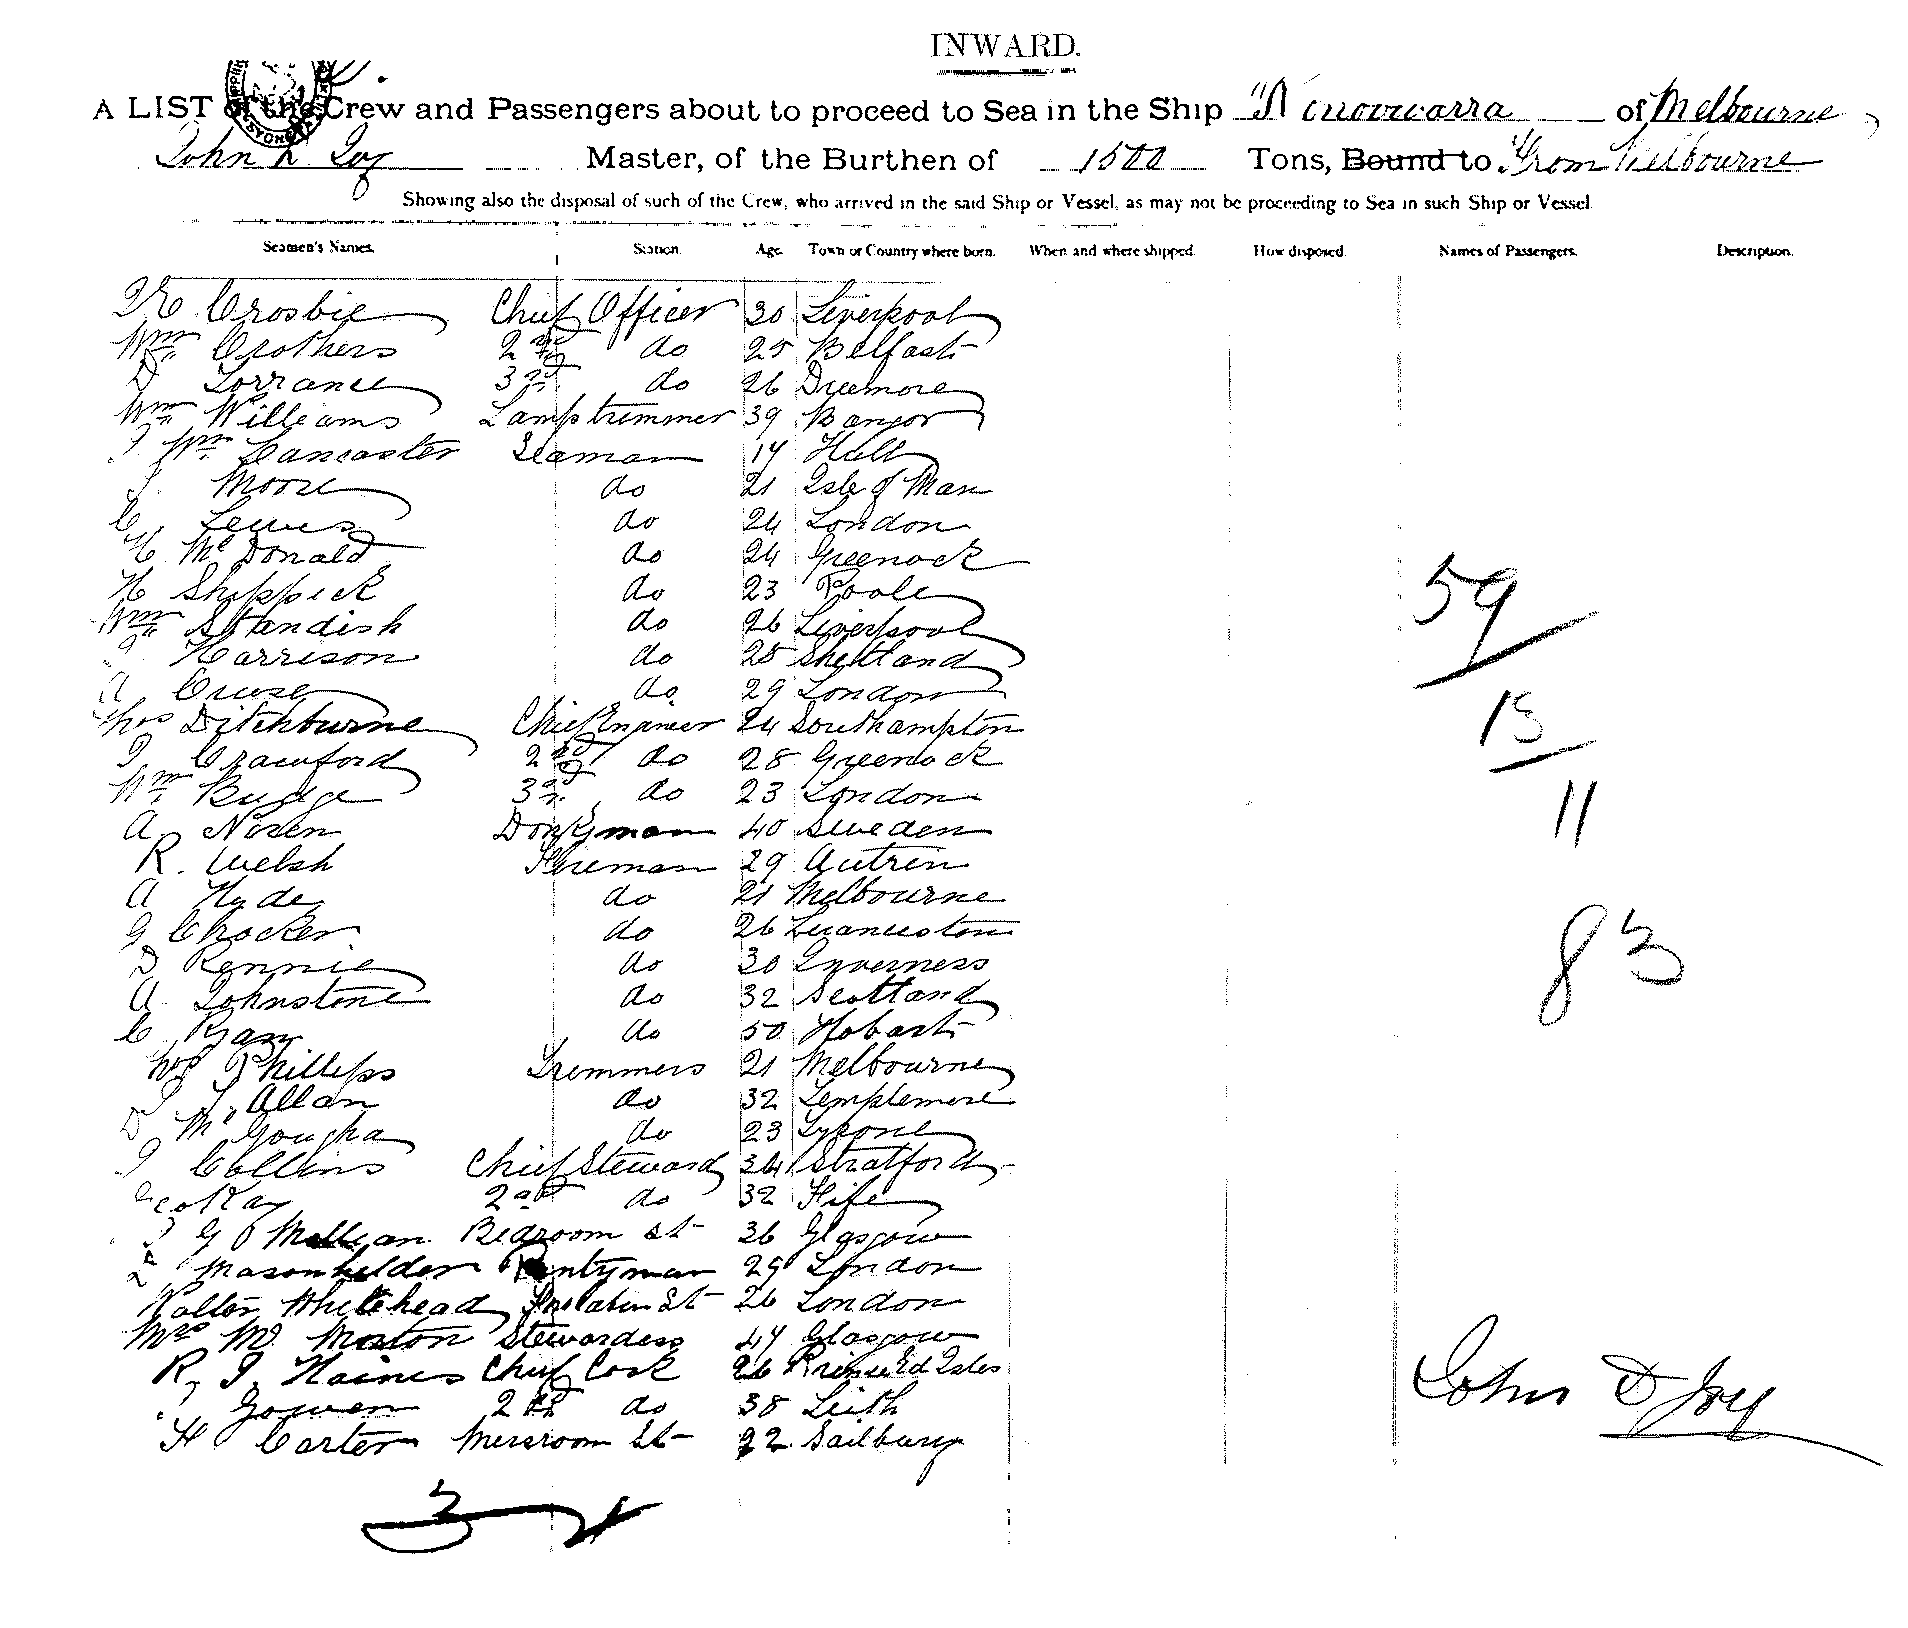 INWARD.
A LIST of the Crew and Passengers about to proceed to Sea in the Ship of Melbourne
John Master, of the Burthen of 1500 Tons, Bound to From Melbourne
Showing also the disposal of such of the Crew, who arrived in the said Ship or Vessel, as may not be proceeding to Sea in such Ship or Vessel
Seamen's Names. Station. Age. Town or Country where born. When and where shipped. How disposed. Names of Passengers. Description.
Crosbie Chief Officer 30 Liverpool
Wm Crothers 2nd do 25 Belfast
D Torrance 3rd do 26 Dreemore
Wm Williams Lamptrimmer 39 Bangor
Wm Lancaster Seaman 17 Hull
Moore do 21 Isle of Man
C Lewis do 24 London
H McDonald do 24 Greenock
H Shippick do 23 Poole
Wm Standish do 26 Liverpool
Harrison do 25 Shetland
A Cruse do 29 London
Thos Ditchburne Chief Engineer 24 Southampton
Crawford 2nd do 28 Greenock
Wm Budge 3rd do 23 London
A Noren Donkyman 40 Sweden
R. Welsh Fireman 29 Autrin
A Hyde do 21 Melbourne
G Chocker do 26 Launceston
D Rennie do 30 Inverness
A Johnstone do 32 Scotland
C Ryan do 50 Hobart
Thos Phillips Tremmers 21 Melbourne
Allan do 32 Templemore
D Mc Gougha do 23 Tyrone
Collins Chief Steward 34 Stratford
Geo Kay 2nd do 32 Fife
G Bedroom St 36 Glasgow
Masonhelder Pantryman 29 London
Walter Whitehead St 26 London
Mrs M. Morton Stewardess 47 Glasgow
R. J. Haines Chief Cook 26
Gowen 2nd do 38 Leith
H Carter Messroom St 22 Sailbury
59
13
11
83
John D Joy